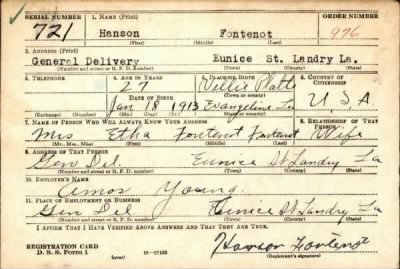 SERIAL NUMBER 1. NAME (Print) ORDER NUMBER
721 Hanson Fontenot 976
(First) (Middle) (Last)
2. ADDRESS (Print)
General Delivery Eunice St. Landry La.
(Number and street or R. F. D. number) (Town) (County) (State)
3. TELEPHONE 4. AGE IN YEARS 5. PLACE OF BIRTH 6. COUNTRY OF CITIZENSHIP
27 Ville Platte
DATE OF BIRTH (Town or county)
Jan 18 1913 Evangeline La U.S.A.
(Exchange) (Number) (Mo.) (Day) (Yr.) (State or country)
7. NAME OF PERSON WHO WILL ALWAYS KNOW YOUR ADDRESS 8. RELATIONSHIP OF THAT PERSON
Mrs Etha Fontenot Fontenot Wife
(Mr., Mrs., Miss) (First) (Middle) (Last)
9. ADDRESS OF THAT PERSON
Gen Del. Eunice St Landry La
(Number and street or R. F. D. number) (Town) (County) (State)
10. EMPLOYER'S NAME
Amos Young.
11. PLACE OF EMPLOYMENT OR BUSINESS
Gen Del Eunice St Landry La
(Number and street or R. F. D. number) (Town) (County) (State)
I AFFIRM THAT I HAVE VERIFIED ABOVE ANSWERS AND THAT THEY ARE TRUE.
REGISTRATION CARD
D. S. S. FORM 1 (over) Hanson Fontenot
(Registrant's signature)